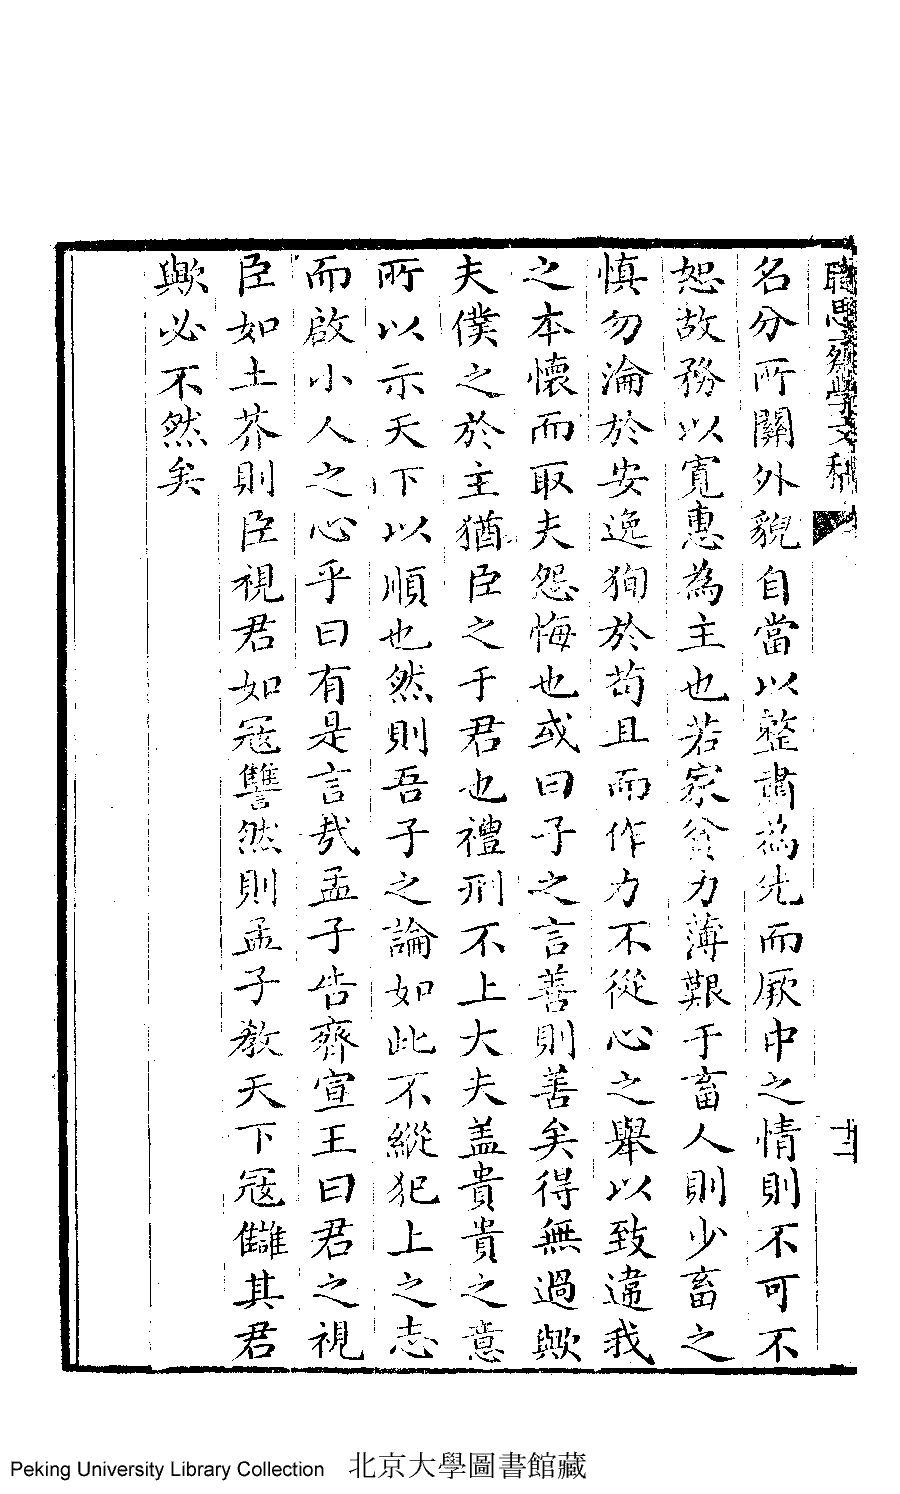 名分所關外貌自當以整肅為先而厥中之情則不可不
恕故務以寬惠為主也若家貧力薄艱于畜人則少畜之
慎勿淪於安逸狥於苟且而作力不從心之舉以致違我
之本懷而取夫怨悔也或曰子之言善則善矣得無過歟
夫僕之於主猶臣之于君也禮刑不上大夫盖貴貴之意
所以示天下以順也然則吾子之論如此不縱犯上之志
而啟小人之心乎曰有是言哉孟子告齊宣王曰君之視
臣如土芥則臣視君如寇讐然則孟子教天下寇讎其君
歟必不然矣
思齋學文稿
Peking University Library Collection 北京大學圖書館藏